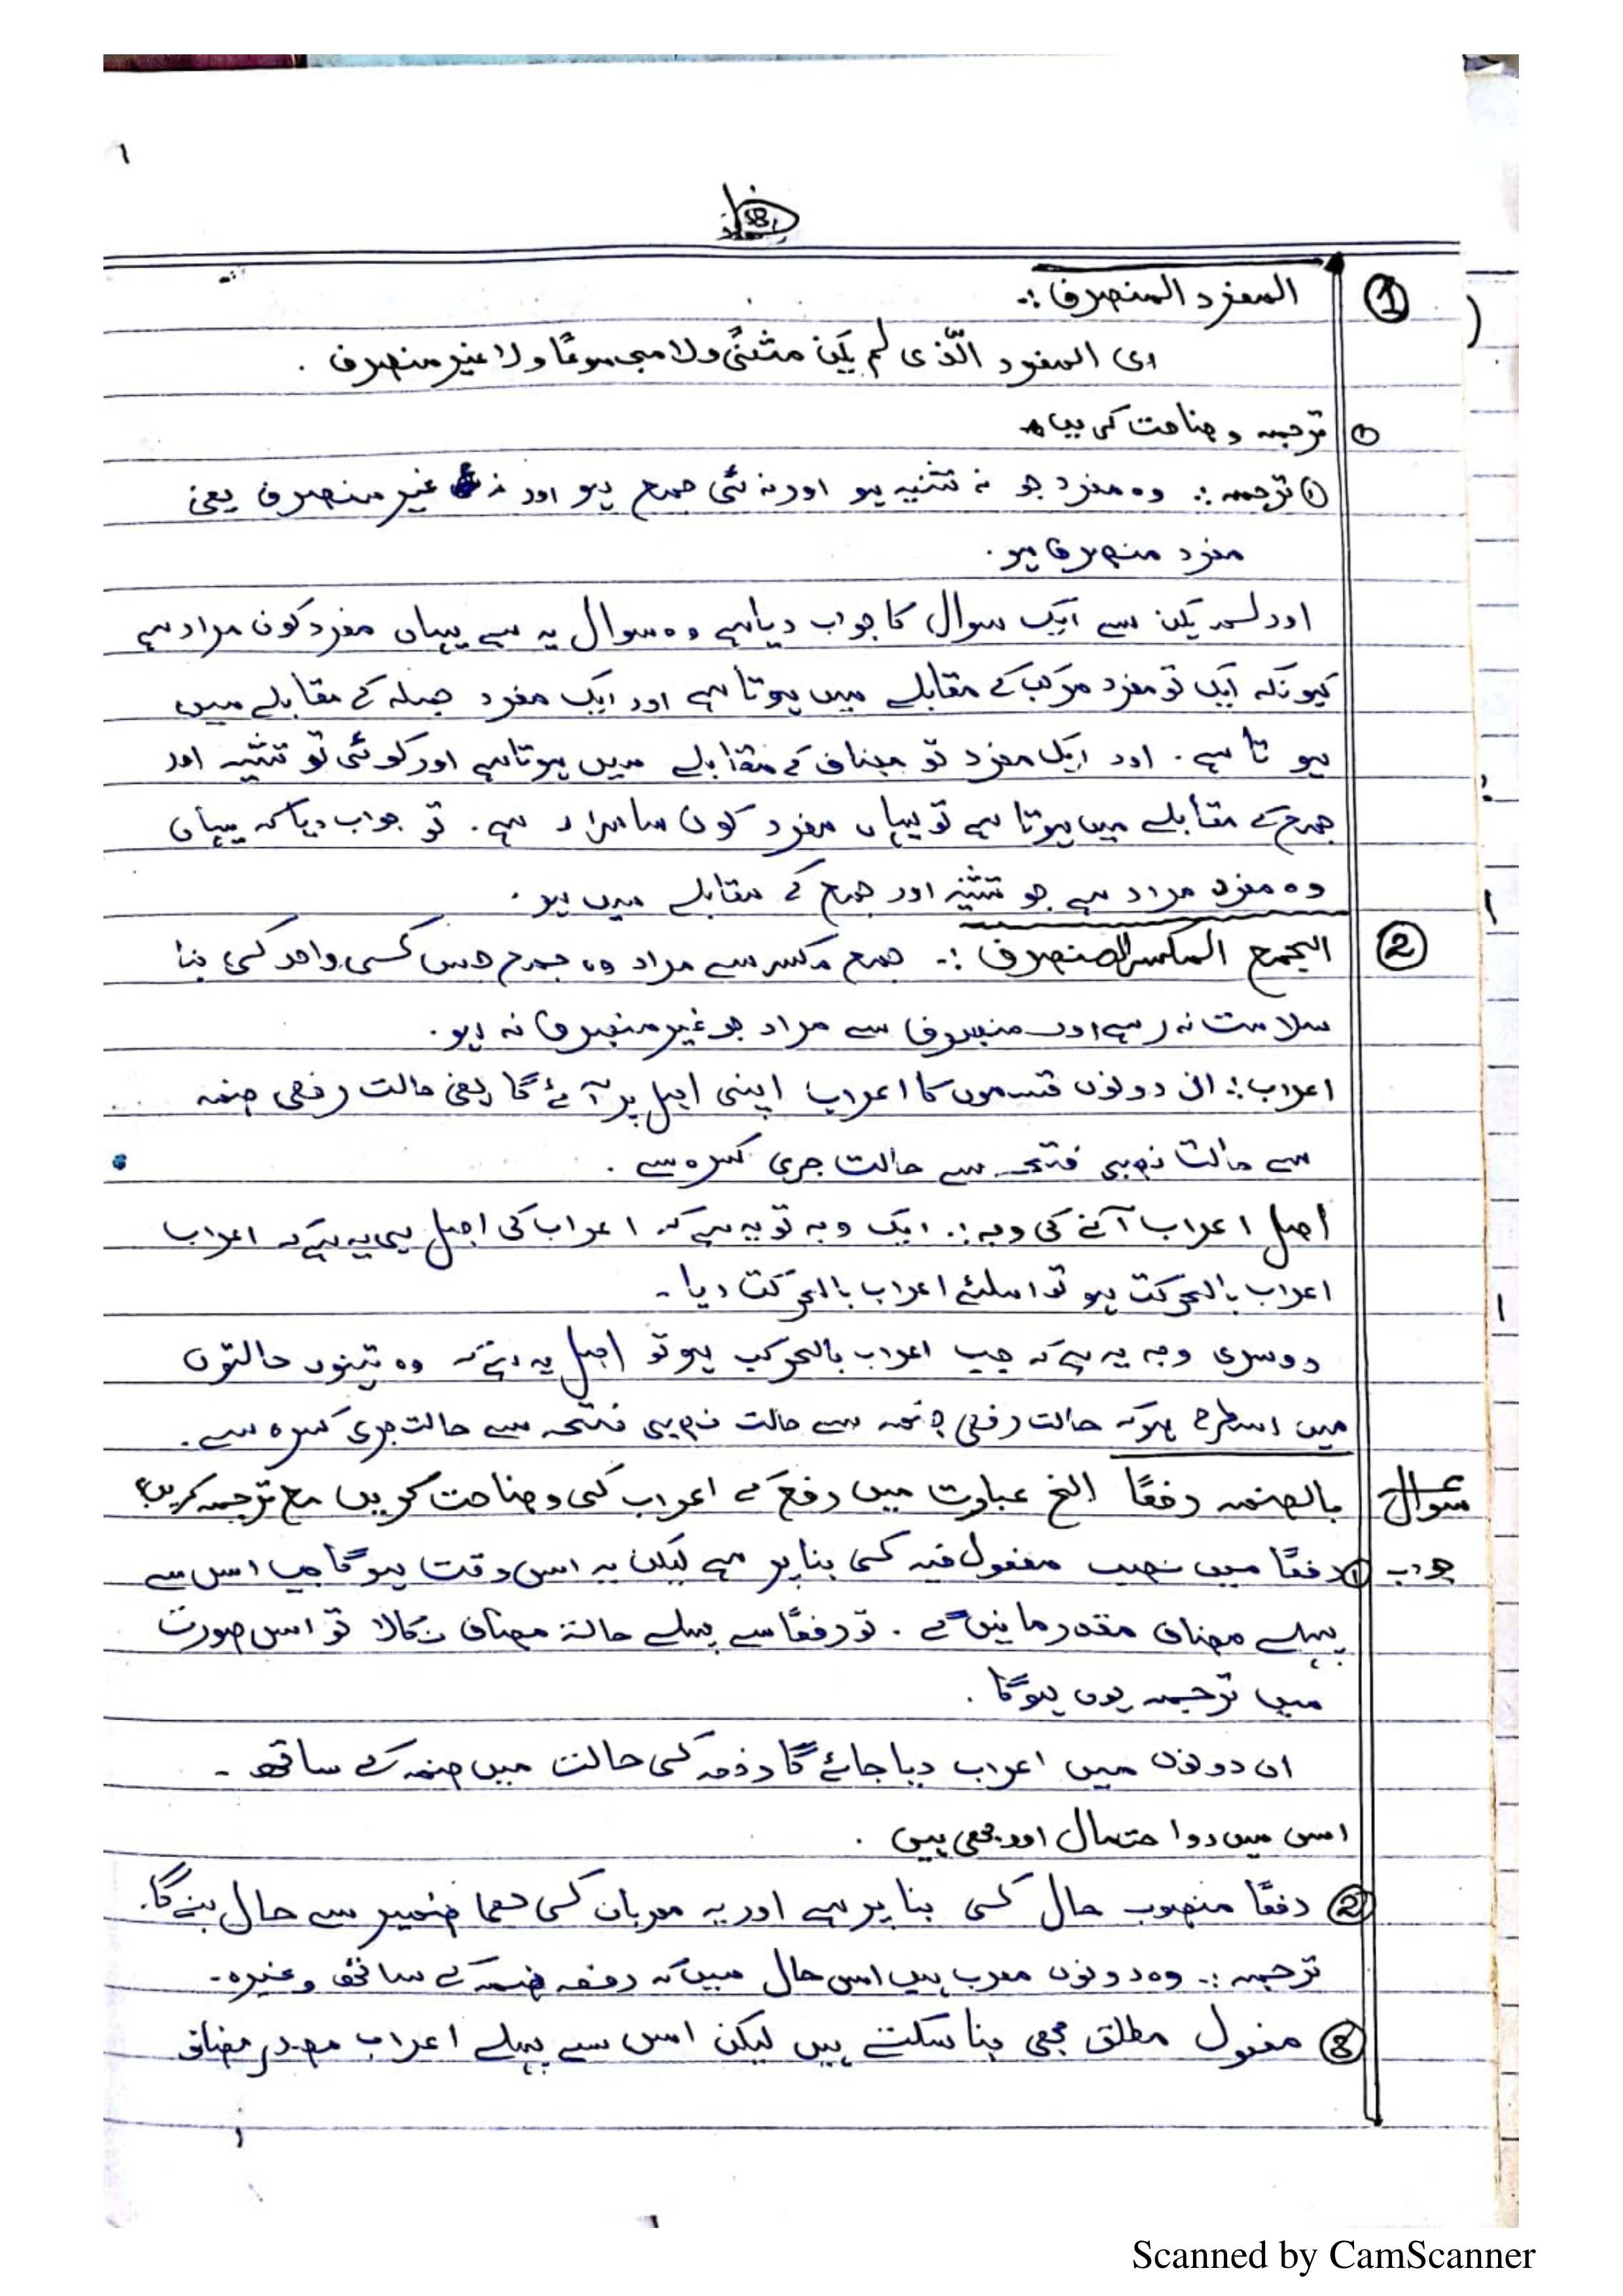 ① المفرد المنصرف :۔
ای المفرد الّذی لم یکن مثنیً ولا مجموعًا ولا غیر منصرف .
① ترجمہ وضاحت کی بیاں
① ترجمہ :۔ وہ مفرد جو نہ تثنیہ ہو اور نہ ئی جمع ہو اور نہ غیر منصرف یعنی
مفرد منصرف ہو .
اور لم یکن سے ایک سوال کا جواب دیا ہے وہ سوال یہ ہے یہاں مفرد کون مراد ہے
کیونکہ ایک تو مفرد مرکب کے مقابلے میں ہوتا ہے اور ایک مفرد جملہ کے مقابلے میں
ہو تا ہے . اور ایک مفرد تو مضاف کے مقابلے میں ہوتا ہے اور کوئی تو تثنیہ اور
جمع کے مقابلے میں ہوتا ہے تو یہاں مفرد کون سا مراد ہے . تو جواب دیا کہ یہاں
وہ مفرد مراد ہے جو تثنیہ اور جمع کے مقابلے میں ہو .
② الجمع المکسر المنصرف :۔ جمع مکسر سے مراد وہ جمع جس کسی واحد کی بنا
سلامت نہ رہے اور منصرف سے مراد جو غیر منصرف نہ ہو .
اعراب :۔ ان دونوں قسموں کا اعراب اپنی اصل پر آئے گا یعنی حالت رفعی ضمہ
سے حالت نصبی فتحہ سے حالت جری کسرہ سے .
اصل اعراب آنے کی وجہ :۔ ایک وجہ تو یہ ہے کہ اعراب کی اصل ہی یہ ہے کہ اعراب
اعراب بالحرکت ہو تو اسلئے اعراب بالحرکت دیا ۔
دوسری وجہ یہ ہے کہ جب اعراب بالحرکب ہو تو اصل یہ ہے کہ وہ تینوں حالتوں
میں اسطرح ہو کہ حالت رفعی ضمہ سے حالت نصبی فتحہ سے حالت جری کسرہ سے .
سوال بالضمہ رفعًا الخ عبارت میں رفع کے اعراب کی وضاحت کریں مع ترجمہ کریں؟
جواب ① رفعًا میں نصب مفعول فیہ کی بنا پر ہے لیکن یہ اس وقت ہو گا جب اس سے
پہلے مضاف مقدر مانیں گے . تو رفعًا سے پہلے حالۃ مضاف نکالا تو اس صورت
میں ترجمہ یوں ہوگا .
ان دونوں میں اعراب دیا جائے گا رفعہ کی حالت میں ضمہ کے ساتھ ۔
اس میں دو احتمال اور بھی ہیں .
② رفعًا منصوب حال کی بنا پر ہے اور یہ معربان کی ھما ضمیر سے حال بنے گا.
ترجمہ :۔ وہ دونوں معرب ہیں اس حال میں کہ رفعہ ضمہ کے ساتھ وغیرہ ۔
③ مفعول مطلق بھی بنا سکتے ہیں لیکن اس سے پہلے اعراب مصدر مضاف
Scanned by CamScanner